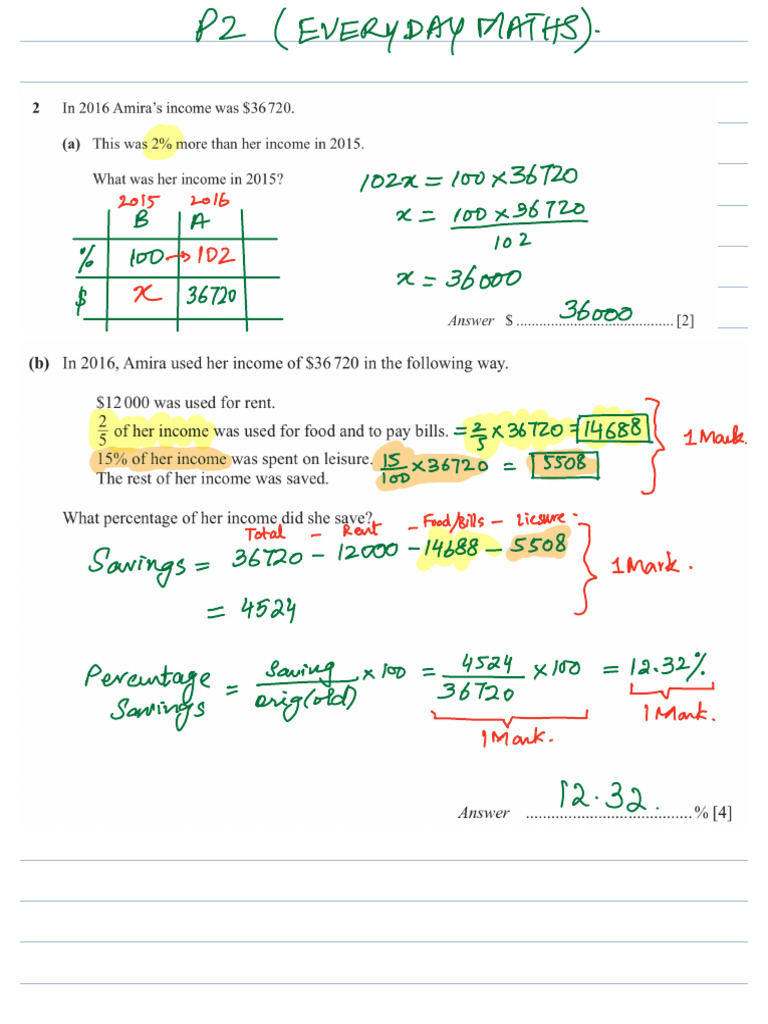 P2 (EVERYDAY MATHS).
2 In 2016 Amira's income was $36 720.
(a) This was 2% more than her income in 2015.
What was her income in 2015?
102x = 100 × 36720
x = 100 × 36720
102
x = 36000
2015 2016
B A
% 100 → 102
$ x 36720
Answer $ 36000 [2]
(b) In 2016, Amira used her income of $36 720 in the following way.
$12 000 was used for rent.
2/5 of her income was used for food and to pay bills. = 2/5 × 36720 = 14688
15% of her income was spent on leisure. 15/100 × 36720 = 5508
1 Mark.
The rest of her income was saved.
What percentage of her income did she save?
Total - Rent - Food/Bills - Liesure.
Savings = 36720 - 12000 - 14688 - 5508
1 Mark.
= 4524
Percentage Savings = Saving/orig(old) × 100 = 4524/36720 × 100 = 12.32%
1 Mark. 1 Mark.
Answer 12.32. % [4]